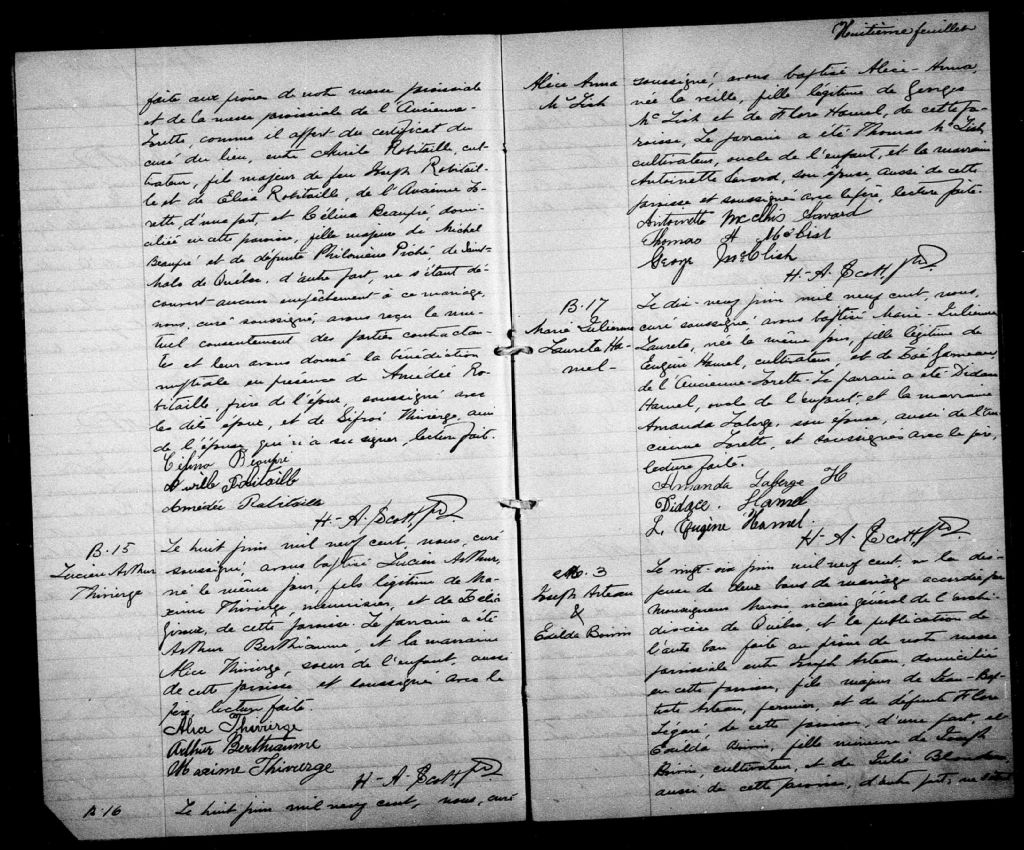 faite aux prônes de notre messe paroissiale
et de la messe paroissiale de l'Ancienne-
Lorette, comme il appert du certificat du
curé du lieu, entre Aurile Robitaille, cul-
tivateur, fils majeur de feu Joseph Robitail-
le et de Elisa Robitaille, de l'Ancienne Lo-
rette, d'une part, et Célina Beaupré, domi-
ciliée en cette paroisse, fille majeure de Michel
Beaupré et de défunte Philomène Piché, de Saint-
Malo de Québec, d'autre part, ne s'étant dé-
couvert aucun empêchement à ce mariage,
nous, curé soussigné, avons reçu le mu-
tuel consentement des parties contractan-
tes et leur avons donné la bénédiction
nuptiale en présence de Amédée Ro-
bitaille, frère de l'époux, soussigné avec
les dits époux, et de Sifroi Thivierge, ami
de l'épouse qui n'a su signer, lecture faite.
Célina Beaupré
Robitaille
Amédée Robitaille
H.-A. Scott, ptre.
B. 15
Lucien Arthur
Thivierge
Le huit juin mil neuf cent, nous, curé
soussigné, avons baptisé Lucien Arthur,
né le même jour, fils légitime de Ma-
xime Thivierge, menuisier, et de Zélia
Giroux, de cette paroisse. Le parrain a été
Arthur Berthiaume, et la marraine
Alice Thivierge, soeur de l'enfant, aussi
de cette paroisse et soussignés avec le
père, lecture faite.
Alia Thivierge
Arthur Berthiaume
Maxime Thivierge
H.-A. Scott, ptre.
B. 16
Le huit juin mil neuf cent, nous, curé
Huitième feuillet
Alice Anna
McLish
soussigné, avons baptisé Alice-Anna,
née la veille, fille légitime de Georges
McLish et de Flore Hamel, de cette pa-
roisse, Le parrain a été Thomas McLish,
cultivateur, oncle de l'enfant, et la marraine
Antoinette Savard, son épouse, aussi de cette
paroisse et soussignés avec le père, lecture faite.
Antoinette Savard
Thomas H McClish
George McClish
H.-A. Scott, ptre.
B. 17
Marie Julienne
Laurette Ha-
mel-
Le dix-neuf juin mil neuf cent, nous,
curé soussigné avons baptisé Marie-Julienne
Laurette, née le même jour, fille légitime de
Eugène Hamel, cultivateur et de Zoé Gauveau
de l'Ancienne-Lorette. Le parrain a été Didace
Hamel, oncle de l'enfant, et la marraine
Amanda Laberge, son épouse, aussi de l'An-
cienne Lorette, et soussignés avec le père,
lecture faite.
Amanda Laberge H
Didace Hamel
L. Eugène Hamel.
H.-A. Scott, ptre.
M. 3
Joseph Arteau
&
Exilda Boivin
Le vingt-six juin mil neuf cent, vu la dis-
pense de deux bans de mariage accordée par
Monseigneur Marois vicaire général de l'archi-
diocèse de Québec, et la publication de
l'autre ban faite au prône de notre messe
paroissiale entre Joseph Arteau, domicilié
en cette paroisse, fils majeur de Jean-Bap-
tiste Arteau, fermier, et de défunte Flore
Légaré de cette paroisse, d'une part, et
Exilda Boivin, fille mineure de Joseph
Boivin, cultivateur, et de Julie Blondeau
aussi de cette paroisse, d'autre part, ne s'étant